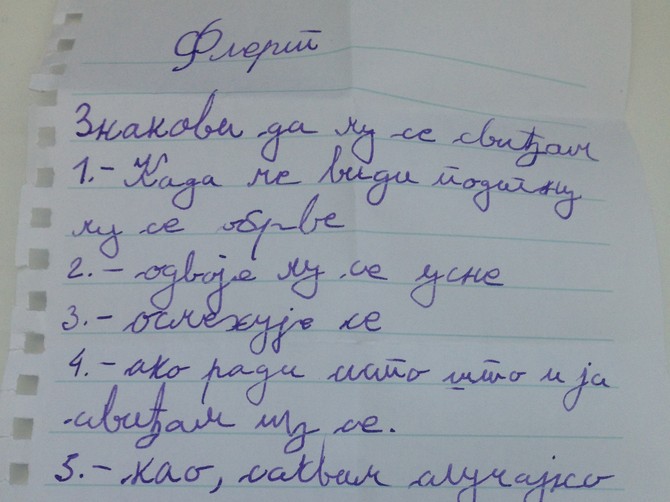 Флерт
Знакови да му се свиђам
1.- Када ме види подигну
му се обрве
2.- одвоје му се усне
3.- осмехује се
4.- ако ради исто што и ја
свиђам му се.
5.- као, сасвим случајно